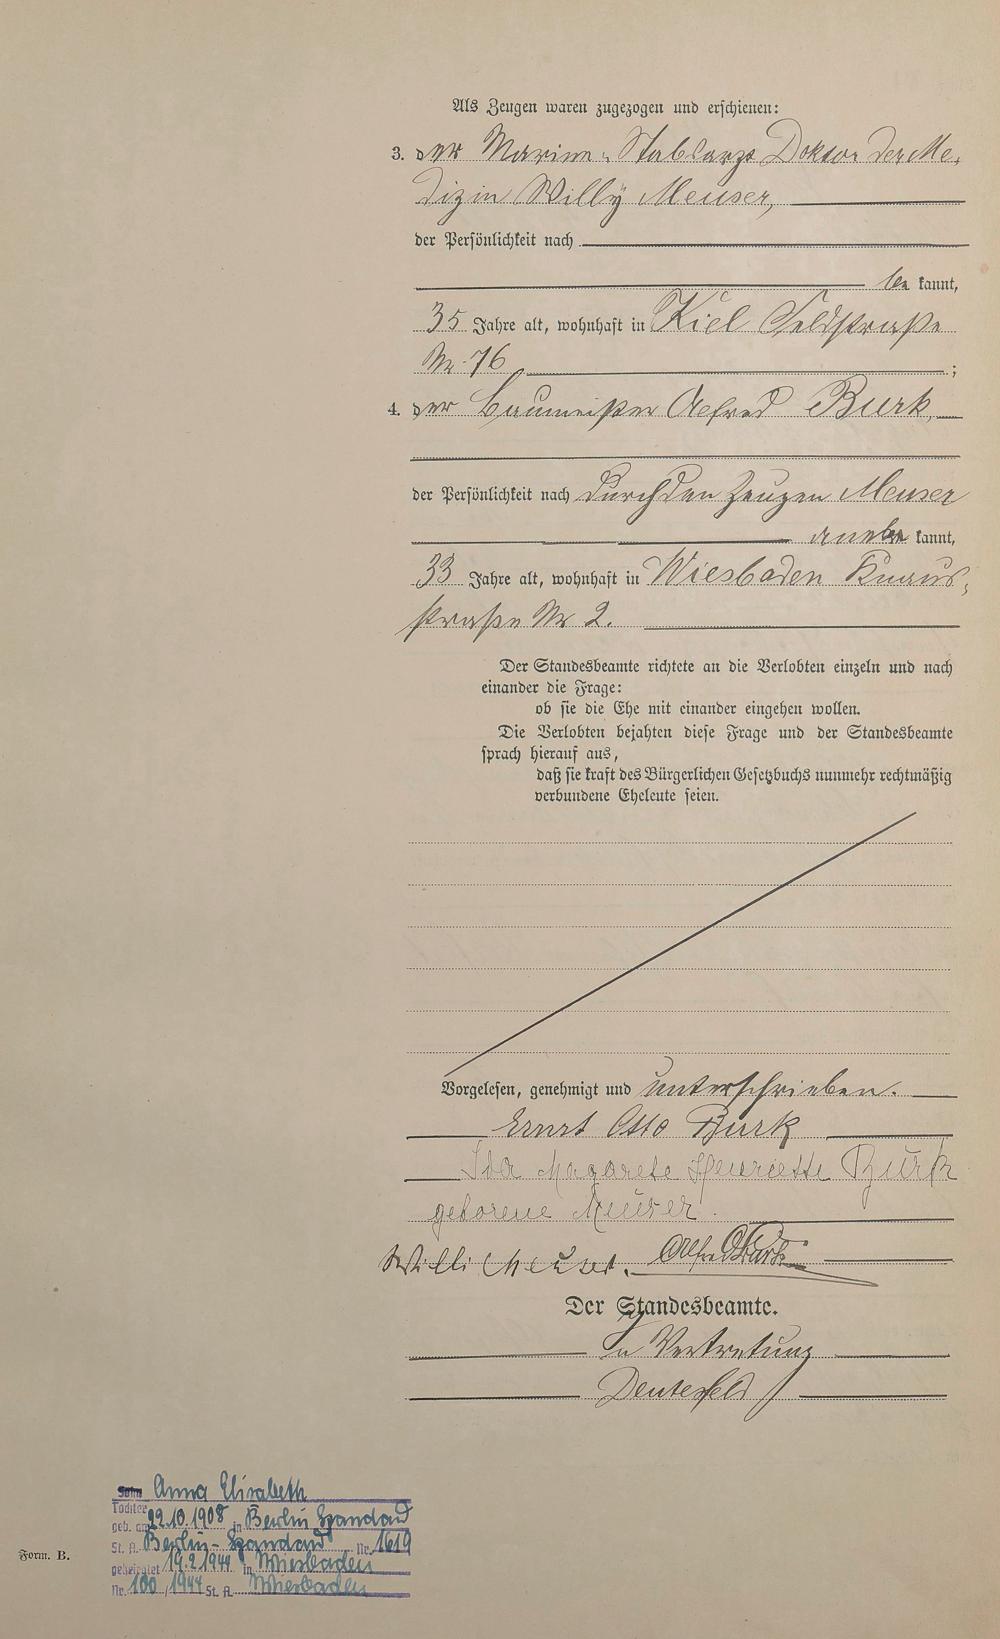 Als Zeugen waren zugezogen und erschienen:
3. der Marine-Stabsarzt Doktor der Me-
dizin Willy Meuser,
der Persönlichkeit nach
be kannt,
35 Jahre alt, wohnhaft in Kiel Feldstraße
Nr. 76 ;
4. der Baumeister Alfred Burk,
der Persönlichkeit nach durch den Zeugen Meuser
aner kannt,
33 Jahre alt, wohnhaft in Wiesbaden Knaus-
straße Nr 2.
Der Standesbeamte richtete an die Verlobten einzeln und nach
einander die Frage:
ob sie die Ehe mit einander eingehen wollen.
Die Verlobten bejahten diese Frage und der Standesbeamte
sprach hierauf aus,
daß sie kraft des Bürgerlichen Gesetzbuchs nunmehr rechtmäßig
verbundene Eheleute seien.
Vorgelesen, genehmigt und unterschrieben.
Ernst Otto Burk
Ida Magarete Henriette Burk
geborene Meuser.
Willi Meuser. Alfred Burk
Der Standesbeamte.
In Vertretung
Sohn Anna Elisabeth
Tochter
geb. am 22.10.1908 in Berlin Spandau
St. A. Berlin-Spandau Nr. 1619
geheiratet 19.2.1944 in Wiesbaden
Nr. 100/1944 St. A. Wiesbaden
Form. B.